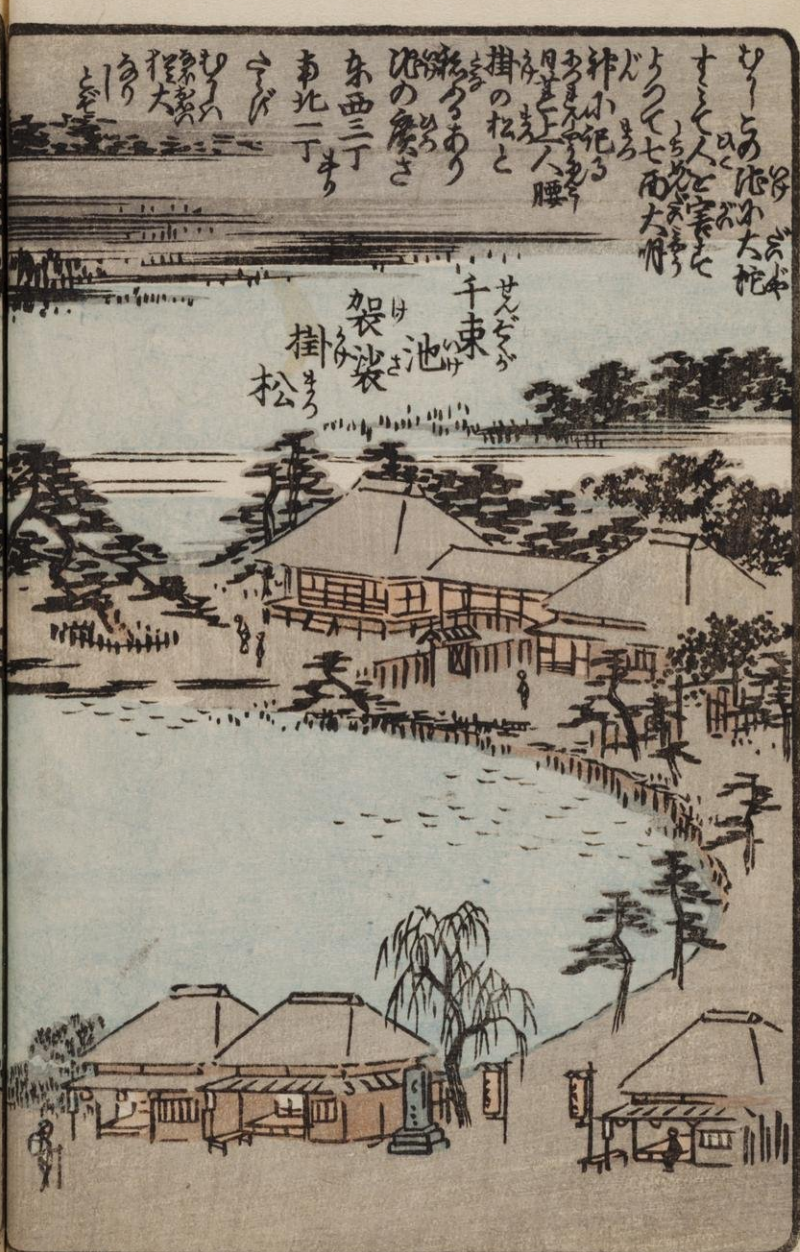 むかしこの池に大蛇
すみて人を害す
よつて七面大明
神に祀る
日蓮上人腰
掛の松と
称するあり
池の廣さ
東西三丁
南北一丁
むかしハ
猶大
なり
し
とぞ
千束
池
袈裟
掛
松